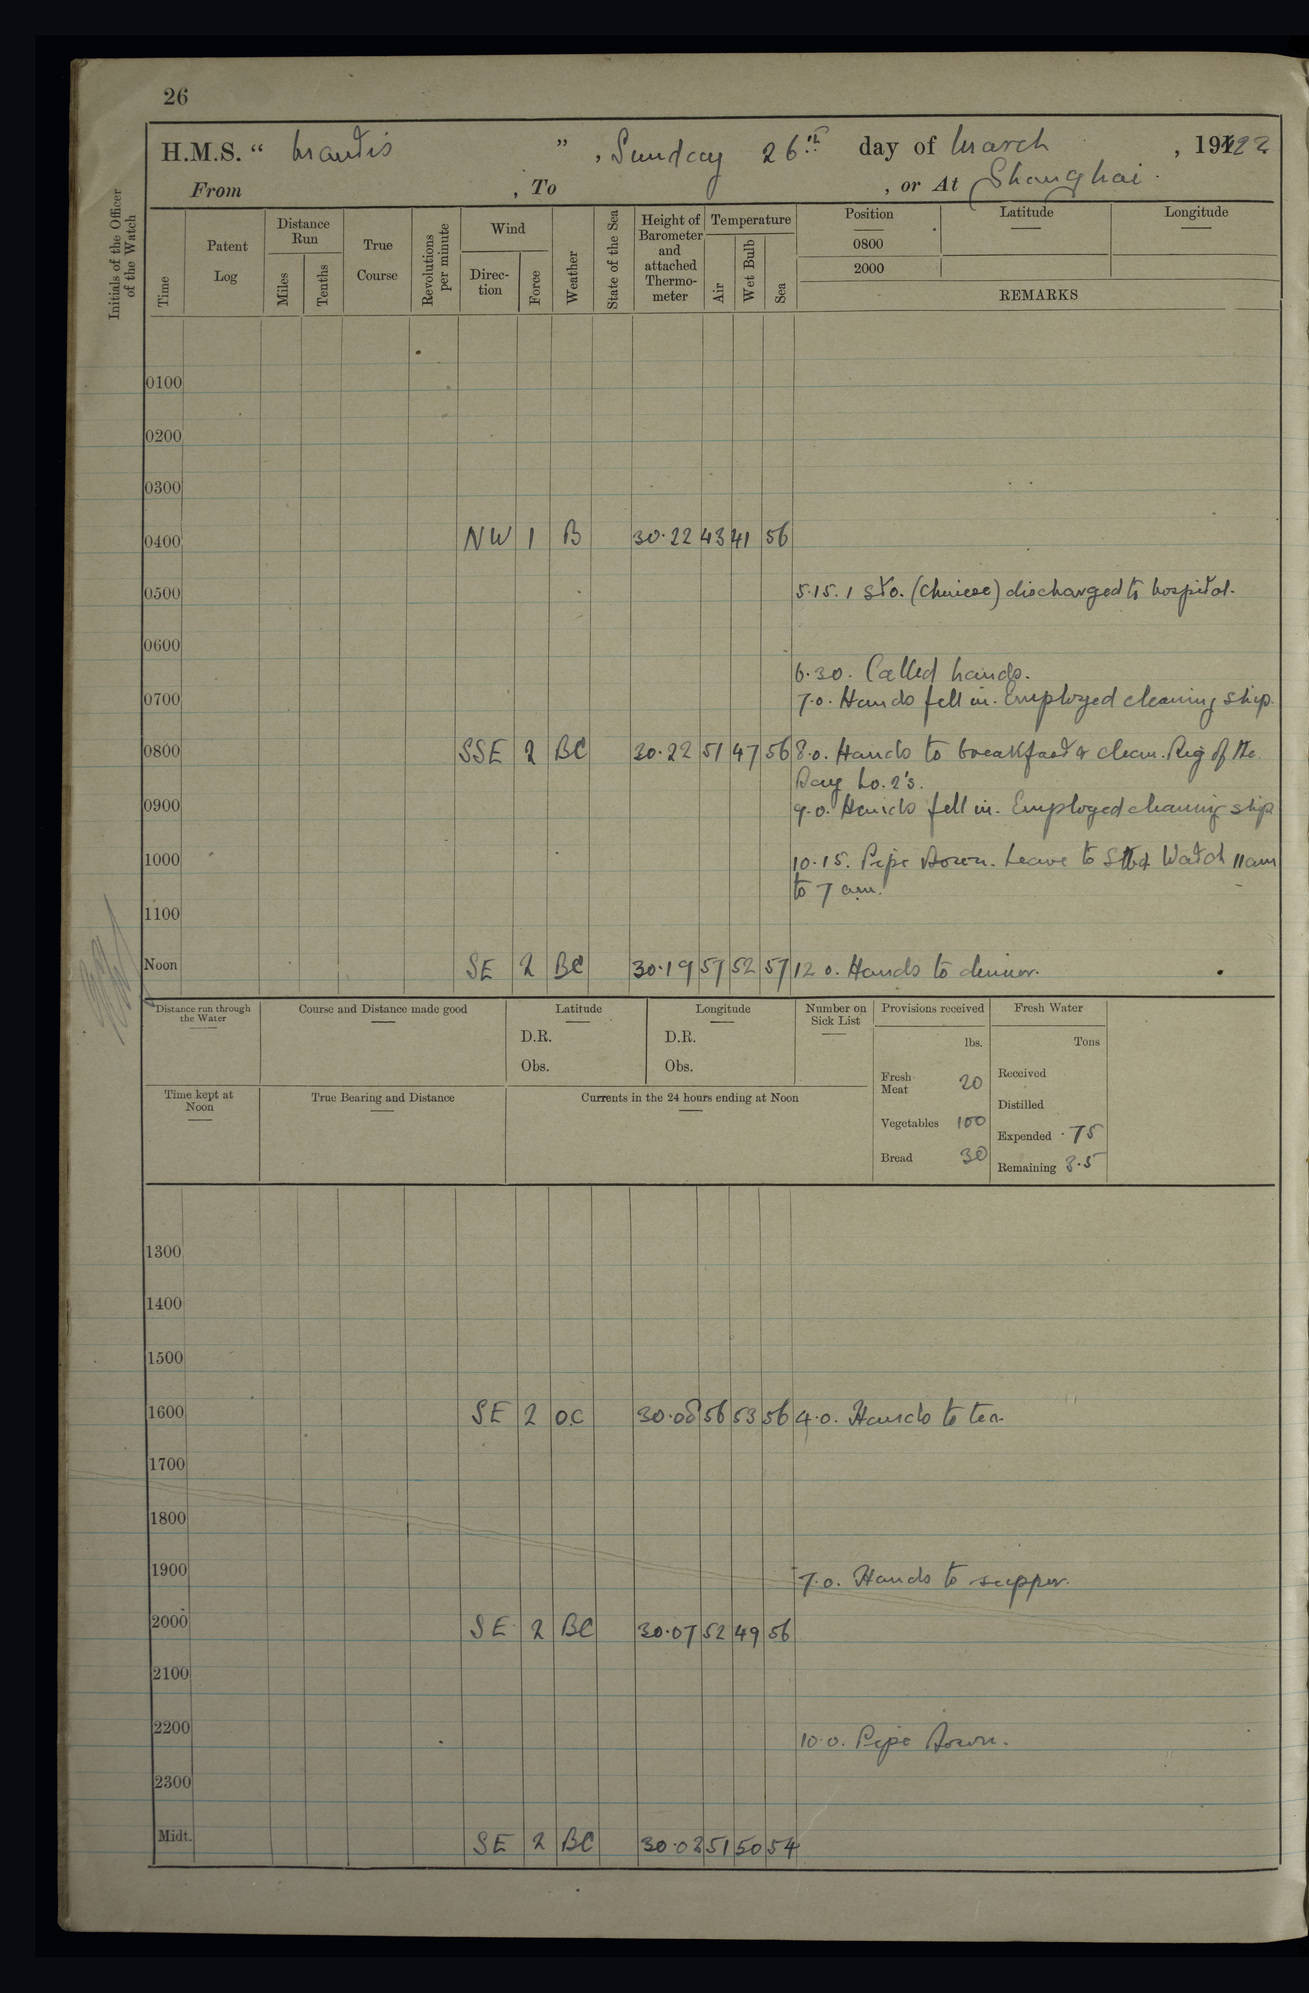 26
H.M.S. “ Mantis ” , Sunday 26th day of March , 1922
From , To , or At Shanghai.
Initials of the Officer of the Watch
Time
Patent Log
Distance Run
Miles
Tenths
True Course
Revolutions per minute
Wind
Direc-tion
Force
Weather
State of the Sea
Height of Barometer and attached Thermo-meter
Temperature
Air
Wet Bulb
Sea
Position Latitude Longitude
0800
2000
REMARKS
0100
0200
0300
0400 NW 1 B 30.22 43 41 56
0500 5.15. 1 Sto. (Chinese) discharged to hospital.
0600
6.30. Called hands.
0700 7.0. Hands fell in. Employed cleaning ship.
0800 SSE 2 BC 30.22 51 47 56 8.0. Hands to breakfast & clean. Rig of the
Day No. 2's.
0900 9.0. Hands fell in. Employed cleaning ship
1000 10.15. Pipe Down. Leave to Stbd Watch 11am
to 7 am.
1100
Noon SE 2 BC 30.19 57 52 57 12 0. Hands to dinner.
Distance run through the Water
Course and Distance made good
Latitude
D.R.
Obs.
Longitude
D.R.
Obs.
Number on Sick List
Provisions received
lbs.
Fresh Meat 20
Vegetables 100
Bread 30
Fresh Water
Tons
Received
Distilled
Expended .75
Remaining 3.5
Time kept at Noon
True Bearing and Distance
Currents in the 24 hours ending at Noon
1300
1400
1500
1600 SE 2 OC 30.08 56 53 56 4.0. Hands to tea.
1700
1800
1900 7.0. Hands to supper.
2000 SE 2 BC 30.07 52 49 56
2100
2200 10.0. Pipe Down.
2300
Midt. SE 2 BC 30.03 51 50 54